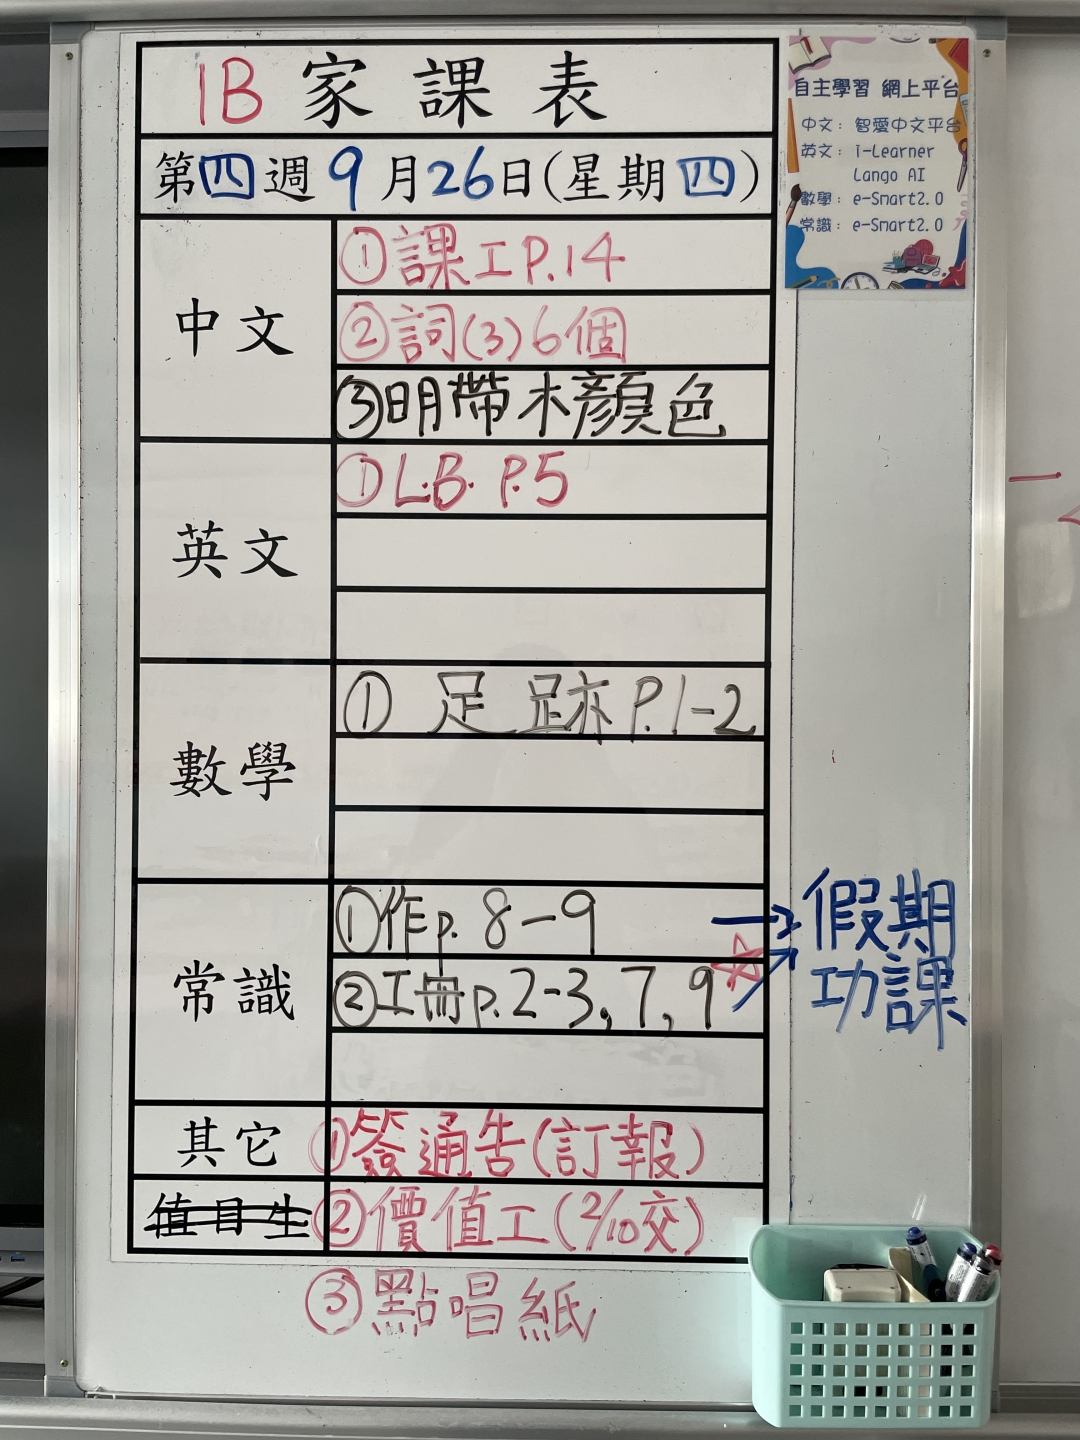 1B 家課表
第四週9月26日(星期四)
中文
①課工P.14
②詞(3)6個
③明帶木顏色
英文
①L.B. P.5
數學
①足跡P.1-2
常識
①作p.8-9
②工冊p.2-3,7,9
假期
功課
其它
①簽通告(訂報)
值日生
②價值工(2/10交)
③點唱紙
自主學習 網上平台
中文：智愛中文平台
英文：i-Learner
Lango AI
數學：e-Smart2.0
常識：e-Smart2.0